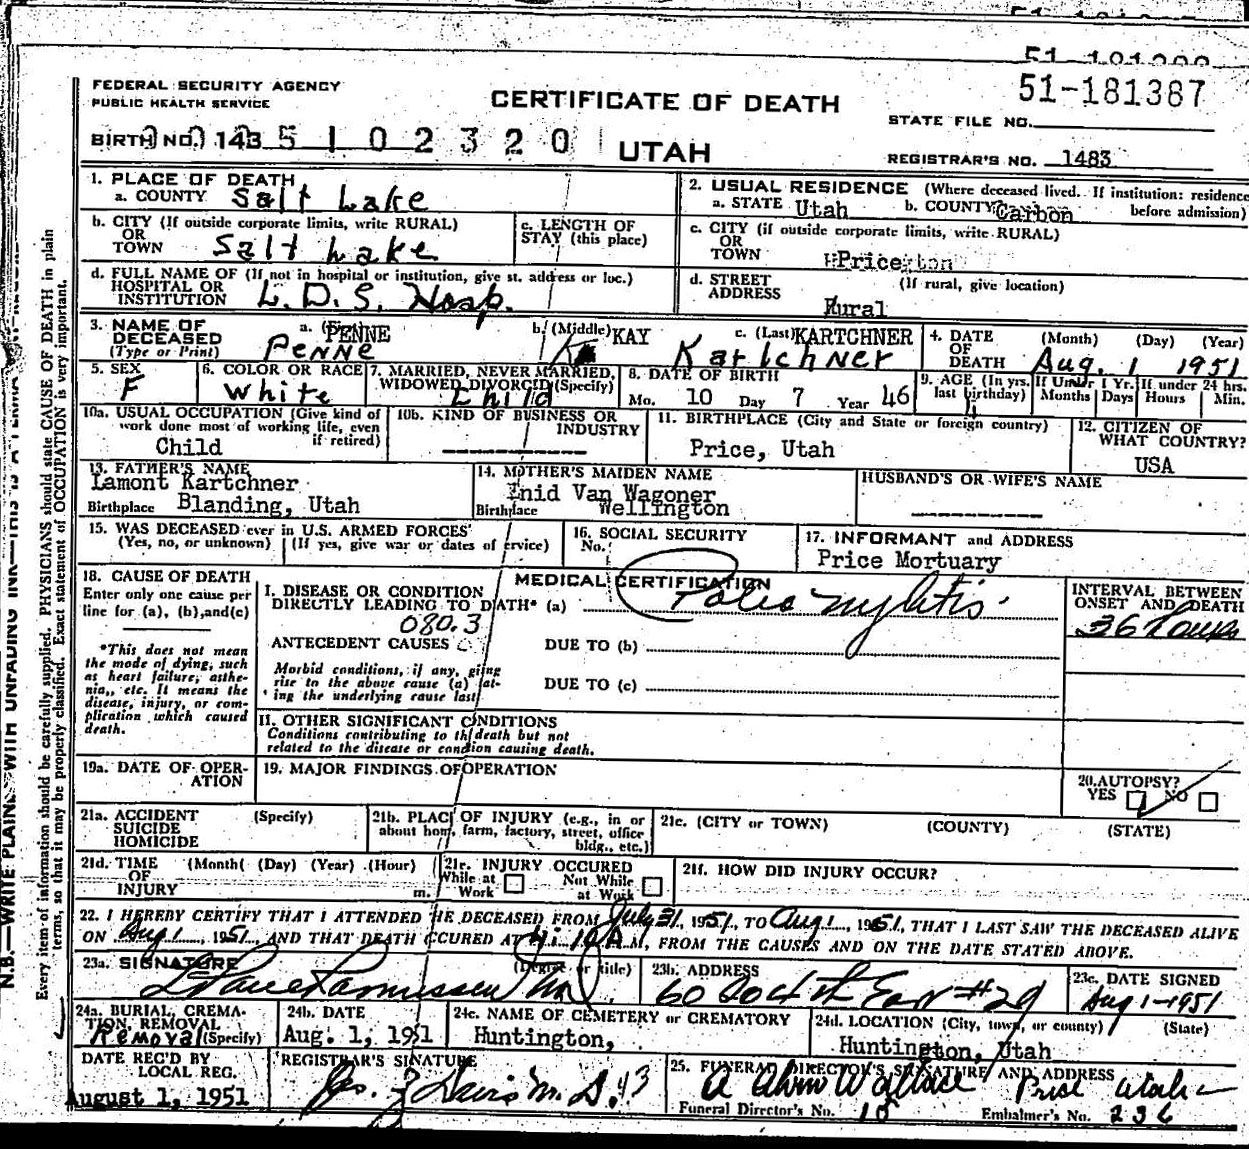 51-181387
FEDERAL SECURITY AGENCY
PUBLIC HEALTH SERVICE
CERTIFICATE OF DEATH
STATE FILE NO.
BIRTH NO. 143 5 1 0 2 3 2 0
UTAH
REGISTRAR'S NO. 1483
1. PLACE OF DEATH
a. COUNTY Salt Lake
2. USUAL RESIDENCE (Where deceased lived. If institution: residence before admission)
a. STATE Utah b. COUNTY Carbon
b. CITY (If outside corporate limits, write RURAL)
OR TOWN Salt Lake
c. LENGTH OF STAY (this place)
c. CITY (if outside corporate limits, write RURAL)
OR TOWN Price
d. FULL NAME OF (If not in hospital or institution, give st. address or loc.)
HOSPITAL OR INSTITUTION L.D.S. Hosp.
d. STREET ADDRESS (If rural, give location)
Rural
3. NAME OF DECEASED (Type or Print)
a. PENNE b. (Middle) KAY c. (Last) KARTCHNER
Penne Kartchner
4. DATE OF DEATH (Month) (Day) (Year)
Aug. 1 1951
5. SEX F
6. COLOR OR RACE White
7. MARRIED, NEVER MARRIED, WIDOWED DIVORCED (Specify) Child
8. DATE OF BIRTH
Mo. 10 Day 7 Year 46
9. AGE (In yrs. last birthday) 4
If Under 1 Yr. Months Days
If under 24 hrs. Hours Min.
10a. USUAL OCCUPATION (Give kind of work done most of working life, even if retired)
Child
10b. KIND OF BUSINESS OR INDUSTRY
11. BIRTHPLACE (City and State or foreign country)
Price, Utah
12. CITIZEN OF WHAT COUNTRY?
USA
13. FATHER'S NAME
Lamont Kartchner
Birthplace Blanding, Utah
14. MOTHER'S MAIDEN NAME
Enid Van Wagoner
Birthplace Wellington
HUSBAND'S OR WIFE'S NAME
15. WAS DECEASED ever in U.S. ARMED FORCES?
(Yes, no, or unknown) (If yes, give war or dates of ervice)
16. SOCIAL SECURITY No.
17. INFORMANT and ADDRESS
Price Mortuary
18. CAUSE OF DEATH
Enter only one cause per line for (a), (b), and (c)
*This does not mean the mode of dying, such as heart failure, asthenia, etc. It means the disease, injury, or complication which caused death.
MEDICAL CERTIFICATION
I. DISEASE OR CONDITION
DIRECTLY LEADING TO D ATH* (a) Polio mylitis
080.3
ANTECEDENT CAUSES
DUE TO (b)
Morbid conditions, if any, gi ing rise to the above cause (a) tating the underlying cause last
DUE TO (c)
INTERVAL BETWEEN ONSET AND DEATH
36 hours
II. OTHER SIGNIFICANT C NDITIONS
Conditions contributing to th death but not
related to the disease or con tion causing death.
19a. DATE OF OPERATION
19. MAJOR FINDINGS OF OPERATION
20. AUTOPSY?
YES NO
21a. ACCIDENT SUICIDE HOMICIDE (Specify)
21b. PLAC OF INJURY (e.g., in or about hom, farm, factory, street, office bldg., etc.)
21c. (CITY or TOWN) (COUNTY) (STATE)
21d. TIME OF INJURY (Month) (Day) (Year) (Hour) m.
21e. INJURY OCCURED
While at Work Not While at Work
21f. HOW DID INJURY OCCUR?
22. I HEREBY CERTIFY THAT I ATTENDED HE DECEASED FROM July 31, 1951, TO Aug 1, 1951, THAT I LAST SAW THE DECEASED ALIVE
ON Aug 1, 1951 AND THAT DEATH CCURED AT 4:10 A.M., FROM THE CAUSES AND ON THE DATE STATED ABOVE.
23a. SIGNATURE (Degree or title)
Rasmussen
23b. ADDRESS
60
23c. DATE SIGNED
Aug 1-1951
24a. BURIAL, CREMATION, REMOVAL (Specify)
Removal
24b. DATE
Aug. 1, 1951
24c. NAME OF CEMETERY or CREMATORY
Huntington,
24d. LOCATION (City, town, or county) (State)
Huntington, Utah
DATE REC'D BY LOCAL REG.
August 1, 1951
REGISTRAR'S SIGNATURE
25. FUNERAL DIRECTOR'S SIGNATURE AND ADDRESS
Wallace Price Utah
Funeral Director's No. 15 Embalmer's No. 236
N.B.—WRITE PLAINLY WITH UNFADING INK—THIS IS A
Every item of information should be carefully supplied. PHYSICIANS should state CAUSE OF DEATH in plain
terms, so that it may be properly classified. Exact statement of OCCUPATION is very important.